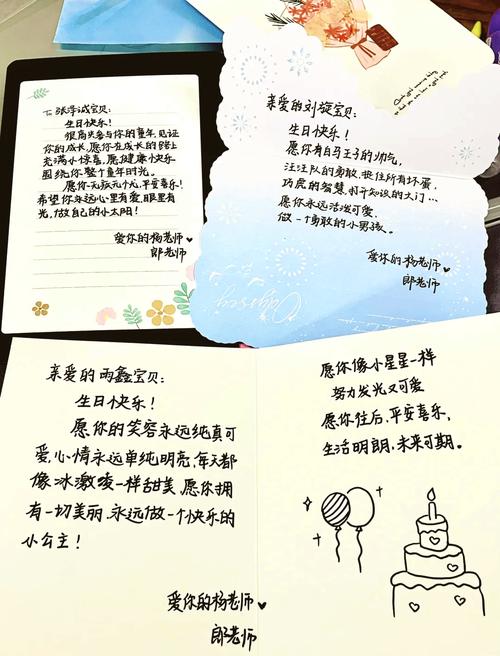 To 张浮诚宝贝:
生日快乐!
很高兴参与你的童年,见证
你的成长,愿你在成长的路上
充满小惊喜,愿健康快乐
围绕你整个童年时光。
愿你无疾亦无忧,平安喜乐!
希望你永远心里有爱,眼里有
光,做自己的小太阳!
爱你的杨老师♥
郎老师
亲爱的刘旋宝贝:
生日快乐!
愿你有白马王子的帅气,
汪汪队的勇敢,抓住所有坏蛋,
巧虎的智慧,打开知识的大门...
愿你永远活泼可爱,
做一个勇敢的小男孩。
爱你的杨老师♥
郎老师
Odyssey
亲爱的雨鑫宝贝:
生日快乐!
愿你的笑容永远纯真可
爱,心情永远单纯明亮,每天都
像冰激凌一样甜美,愿你拥
有一切美丽,永远做一个快乐的
小公主!
爱你的杨老师♥
郎老师
愿你像小星星一样
努力发光又可爱
愿你往后,平安喜乐,
生活明朗,未来可期。